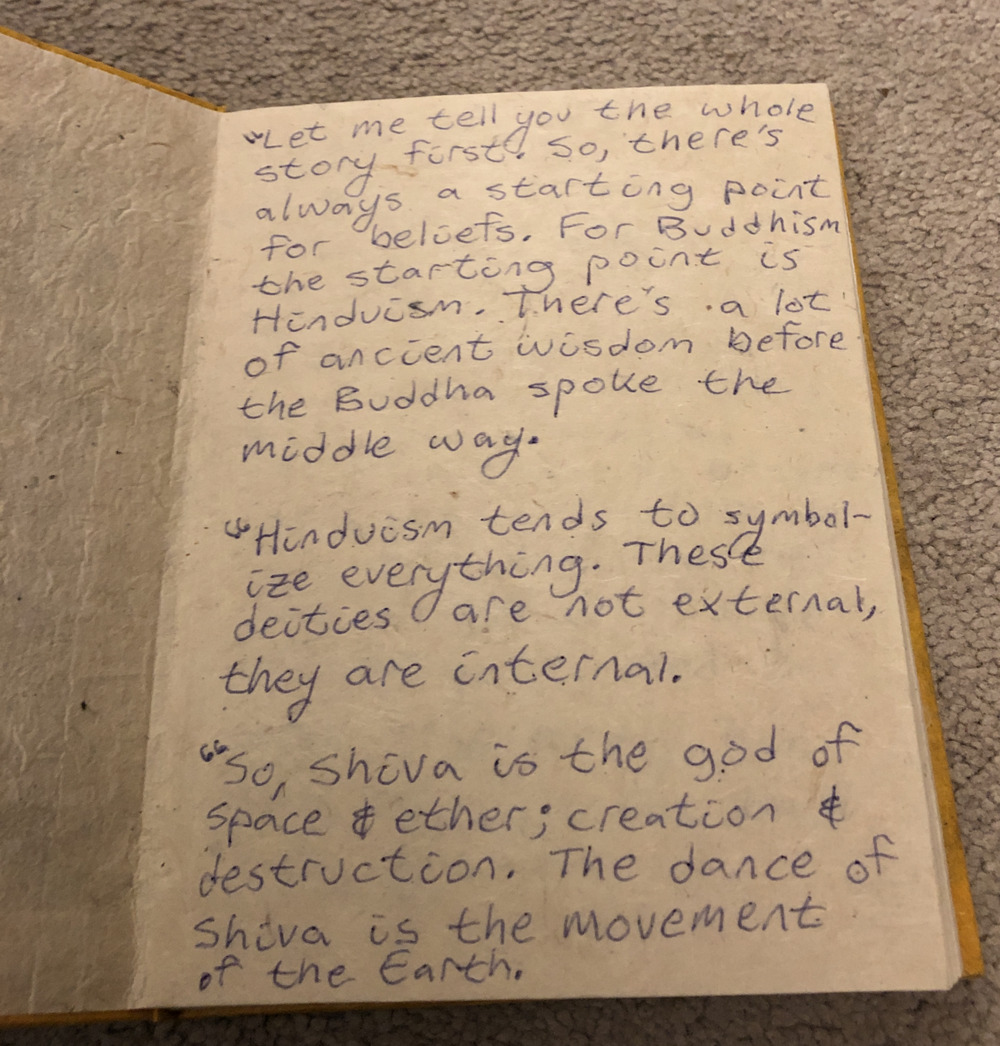 "Let me tell you the whole
story first. So, there's
always a starting point
for beliefs. For Buddhism
the starting point is
Hinduism. There's a lot
of ancient wisdom before
the Buddha spoke the
middle way.
"Hinduism tends to symbol-
ize everything. These
deities are not external,
they are internal.
"So, Shiva is the god of
space & ether; creation &
destruction. The dance of
Shiva is the movement
of the Earth.